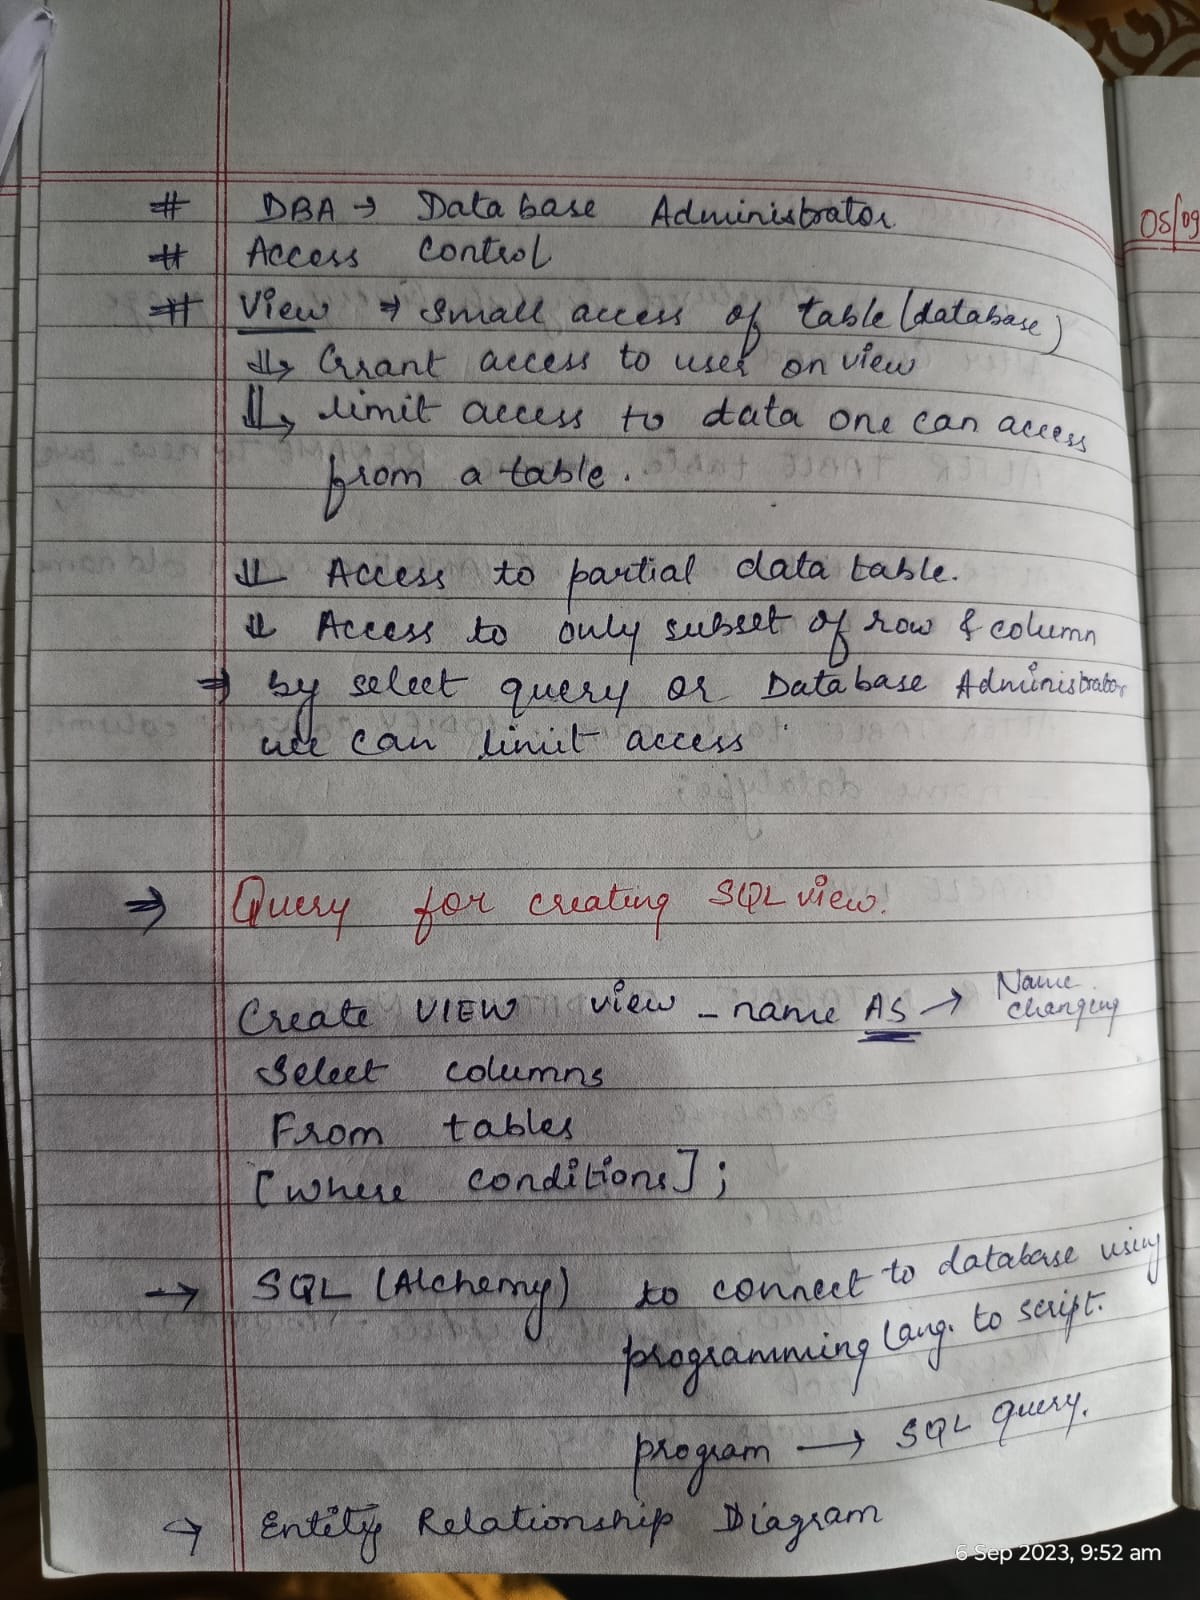 # DBA → Database Administrator
# Access Control
# View → Small access of table (database)
↳ Grant access to user on view
↳ limit access to data one can access
from a table.
⇓ Access to partial data table.
⇓ Access to only subset of row & column
⇒ by select query or Database Administrator
we can limit access
⇒ Query for creating SQL view.
Create VIEW view_name AS → Name changing
Select columns
From tables
[where conditions];
→ SQL (Alchemy) to connect to database using
programming lang. to script.
program → SQL query.
↪ Entity Relationship Diagram
05/09
6 Sep 2023, 9:52 am